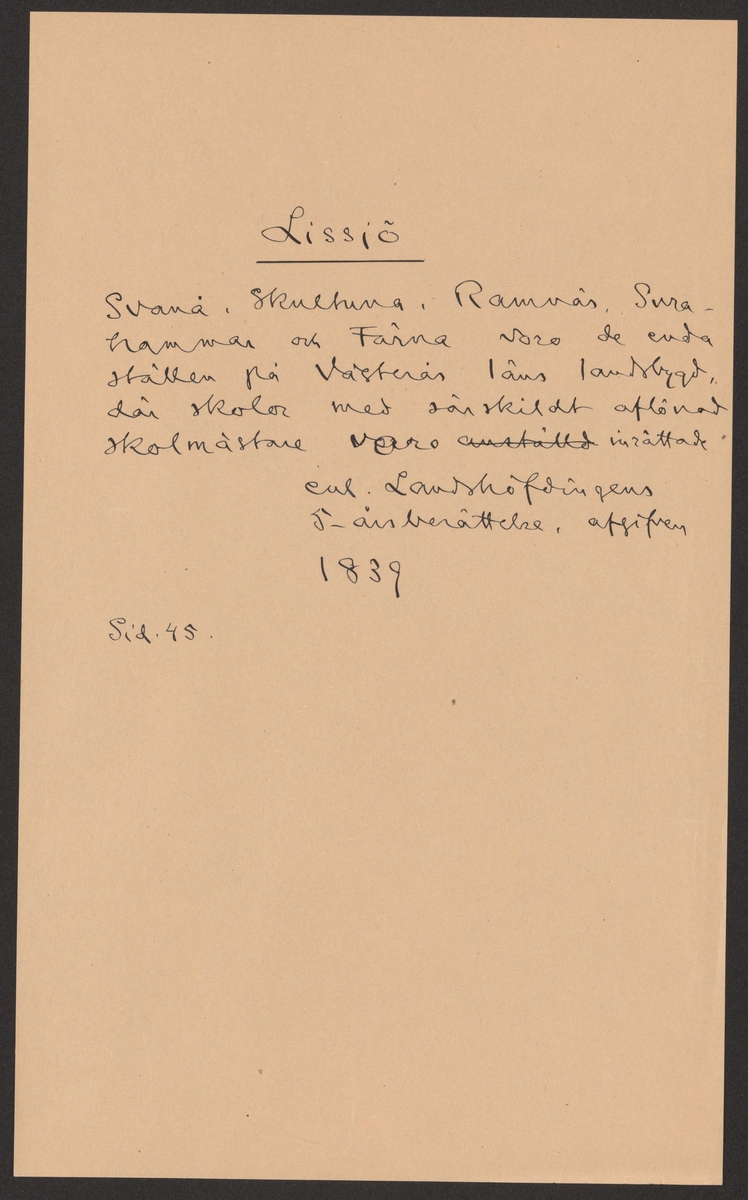 Lissjö
Svanå, Skultuna, Ramnäs, Sura-
hammar och Färna voro de enda
ställen på Västerås läns landsbygd,
där skolor med särskildt aflönad
skolmästare voro anställd inrättade
enl. Landshöfdingens
5-årsberättelse, afgifven
1839
Sid. 45.